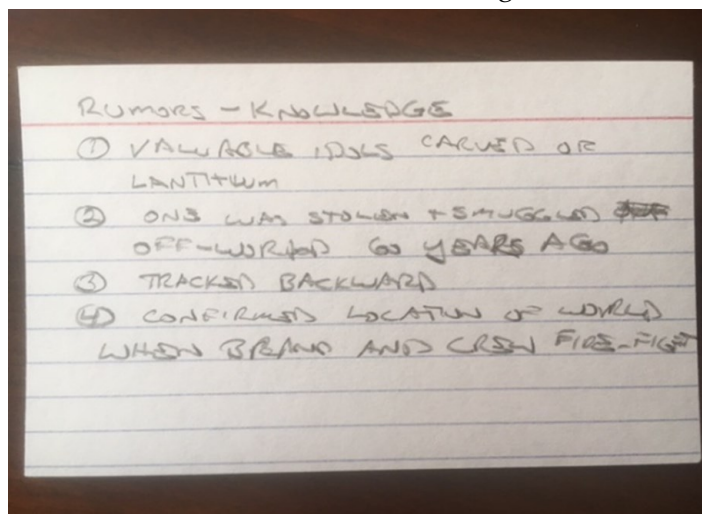 RUMORS - KNOWLEDGE
① VALUABLE IDOLS CARVED OR
LANTITIUM
② ONE WAS STOLEN + SMUGGLED
OFF-WORLD 60 YEARS AGO
③ TRACKED BACKWARD
④ CONFIRMED LOCATION OF WORLD
WHEN BRAND AND CREW FIRE-FIGHT